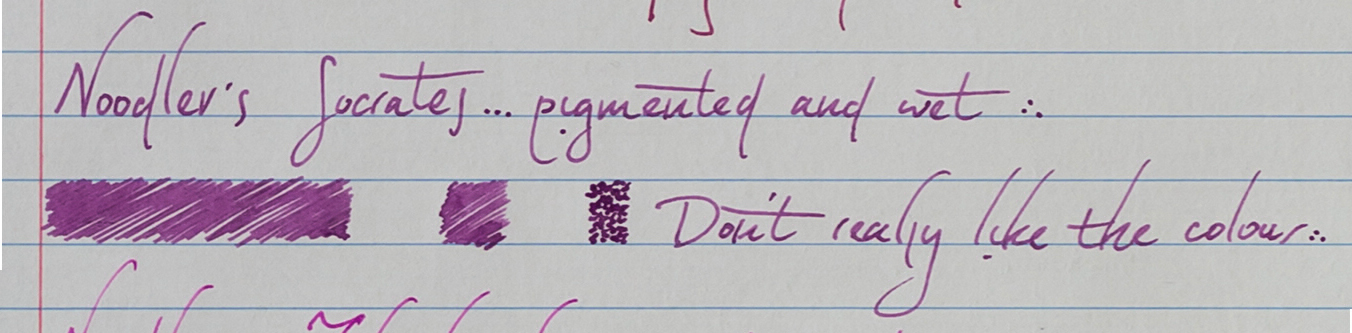 Noodler's Socrates... pigmented and wet :.
Don't really like the colour:.